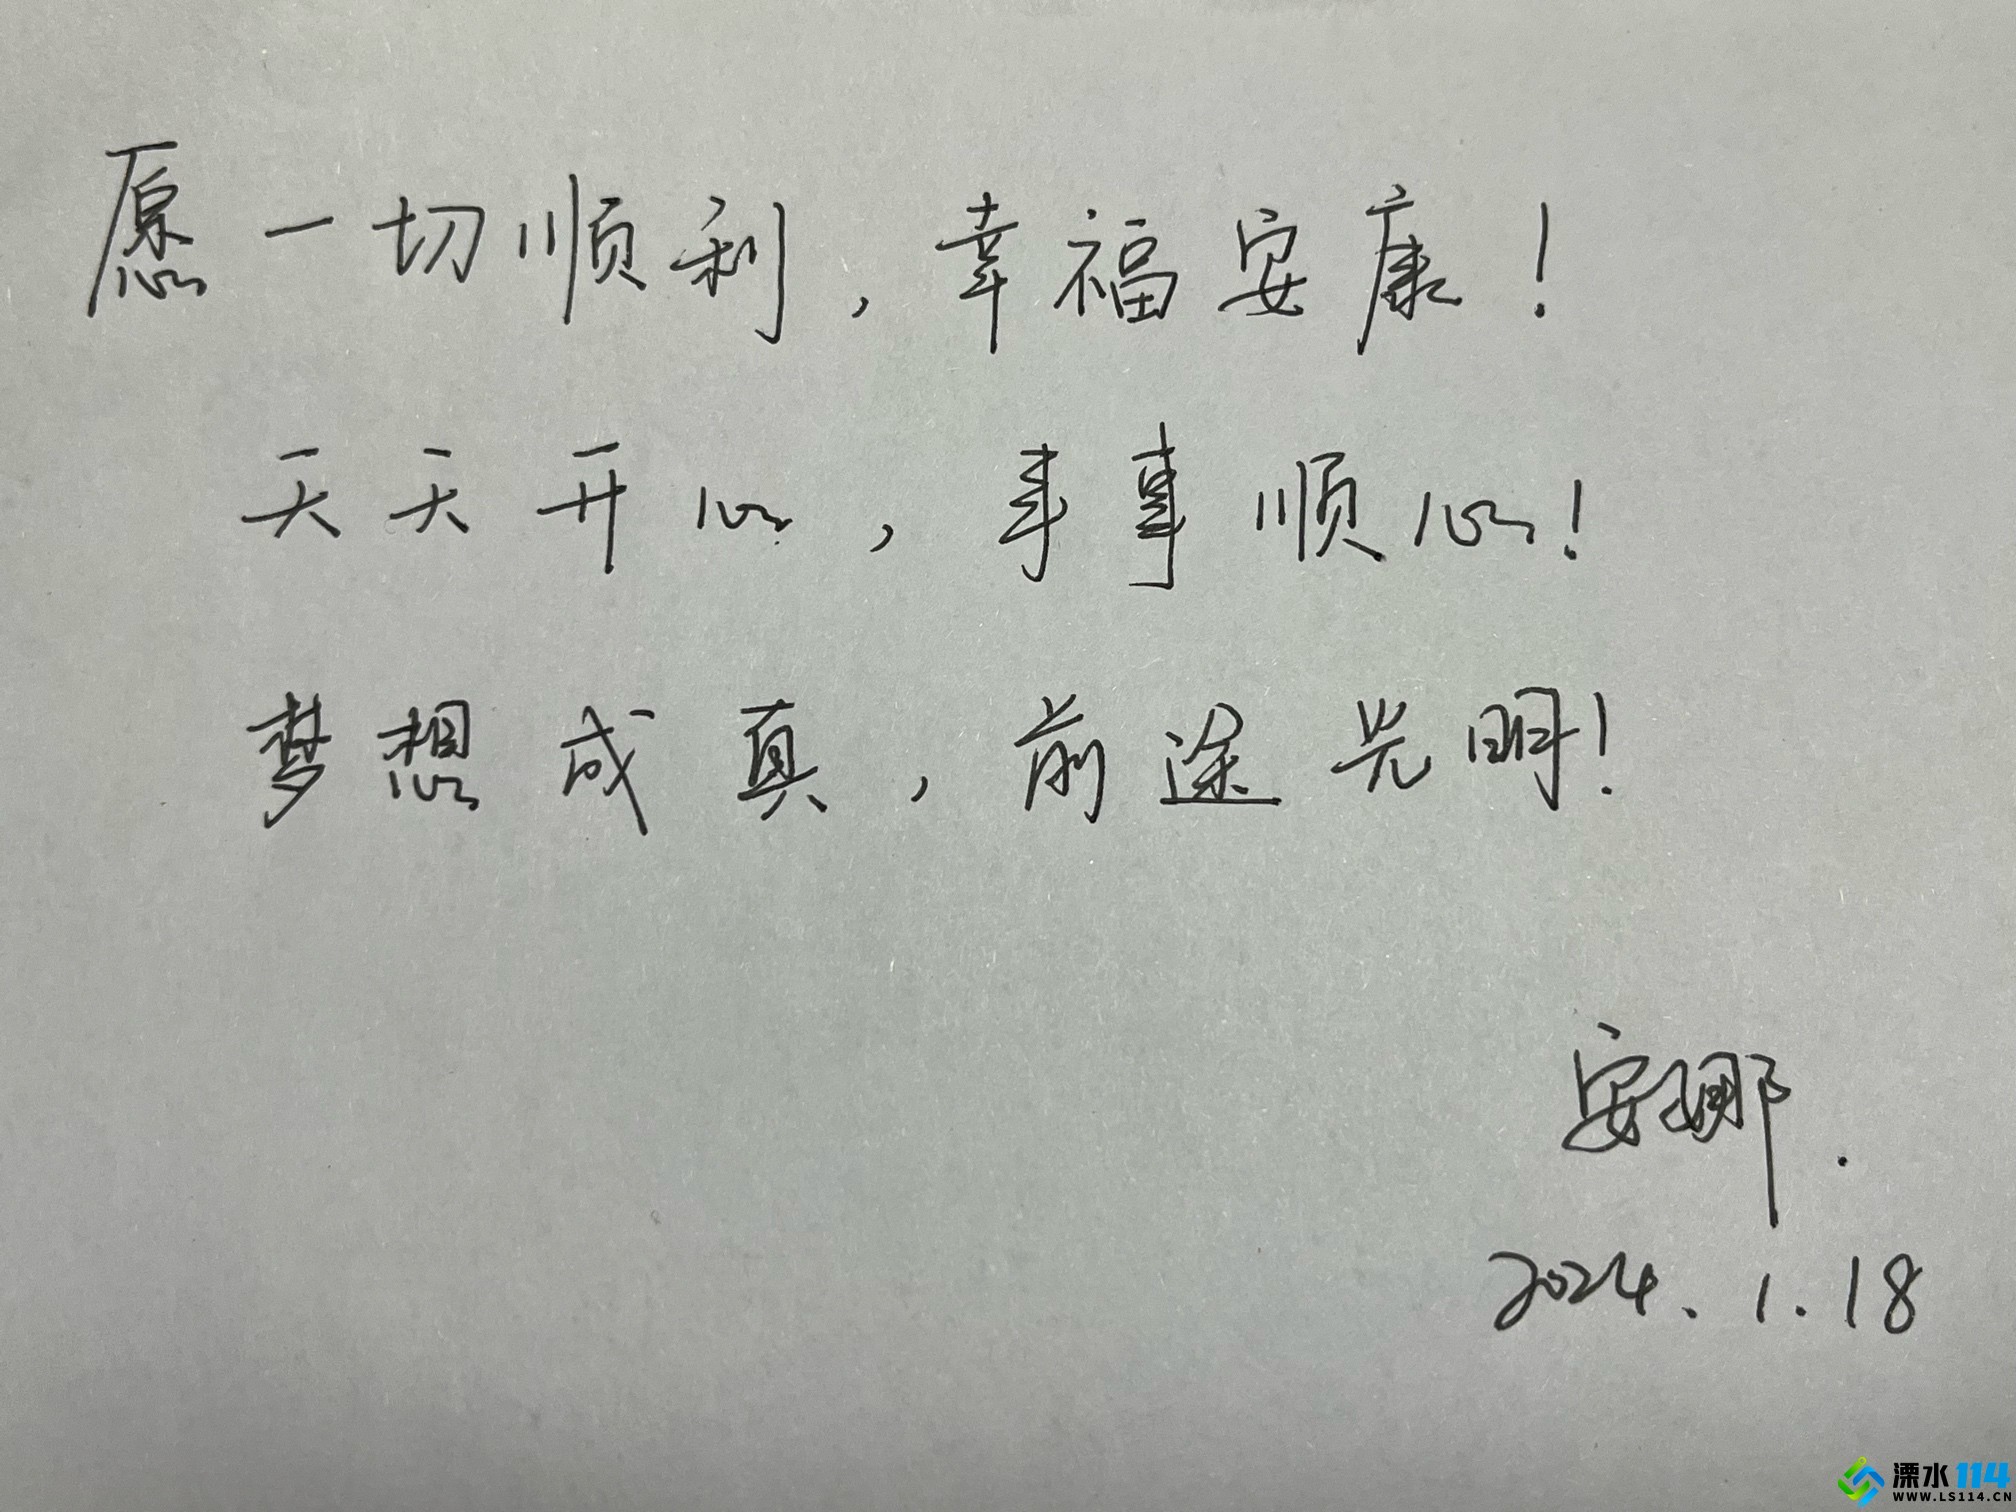 愿一切顺利，幸福安康！
天天开心，事事顺心！
梦想成真，前途光明！
安娜.
2024.1.18
溧水114
WWW.LS114.CN